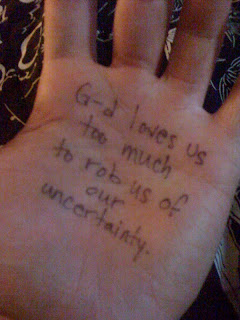 G-d loves us
too much
to rob us of
our
uncertainty.